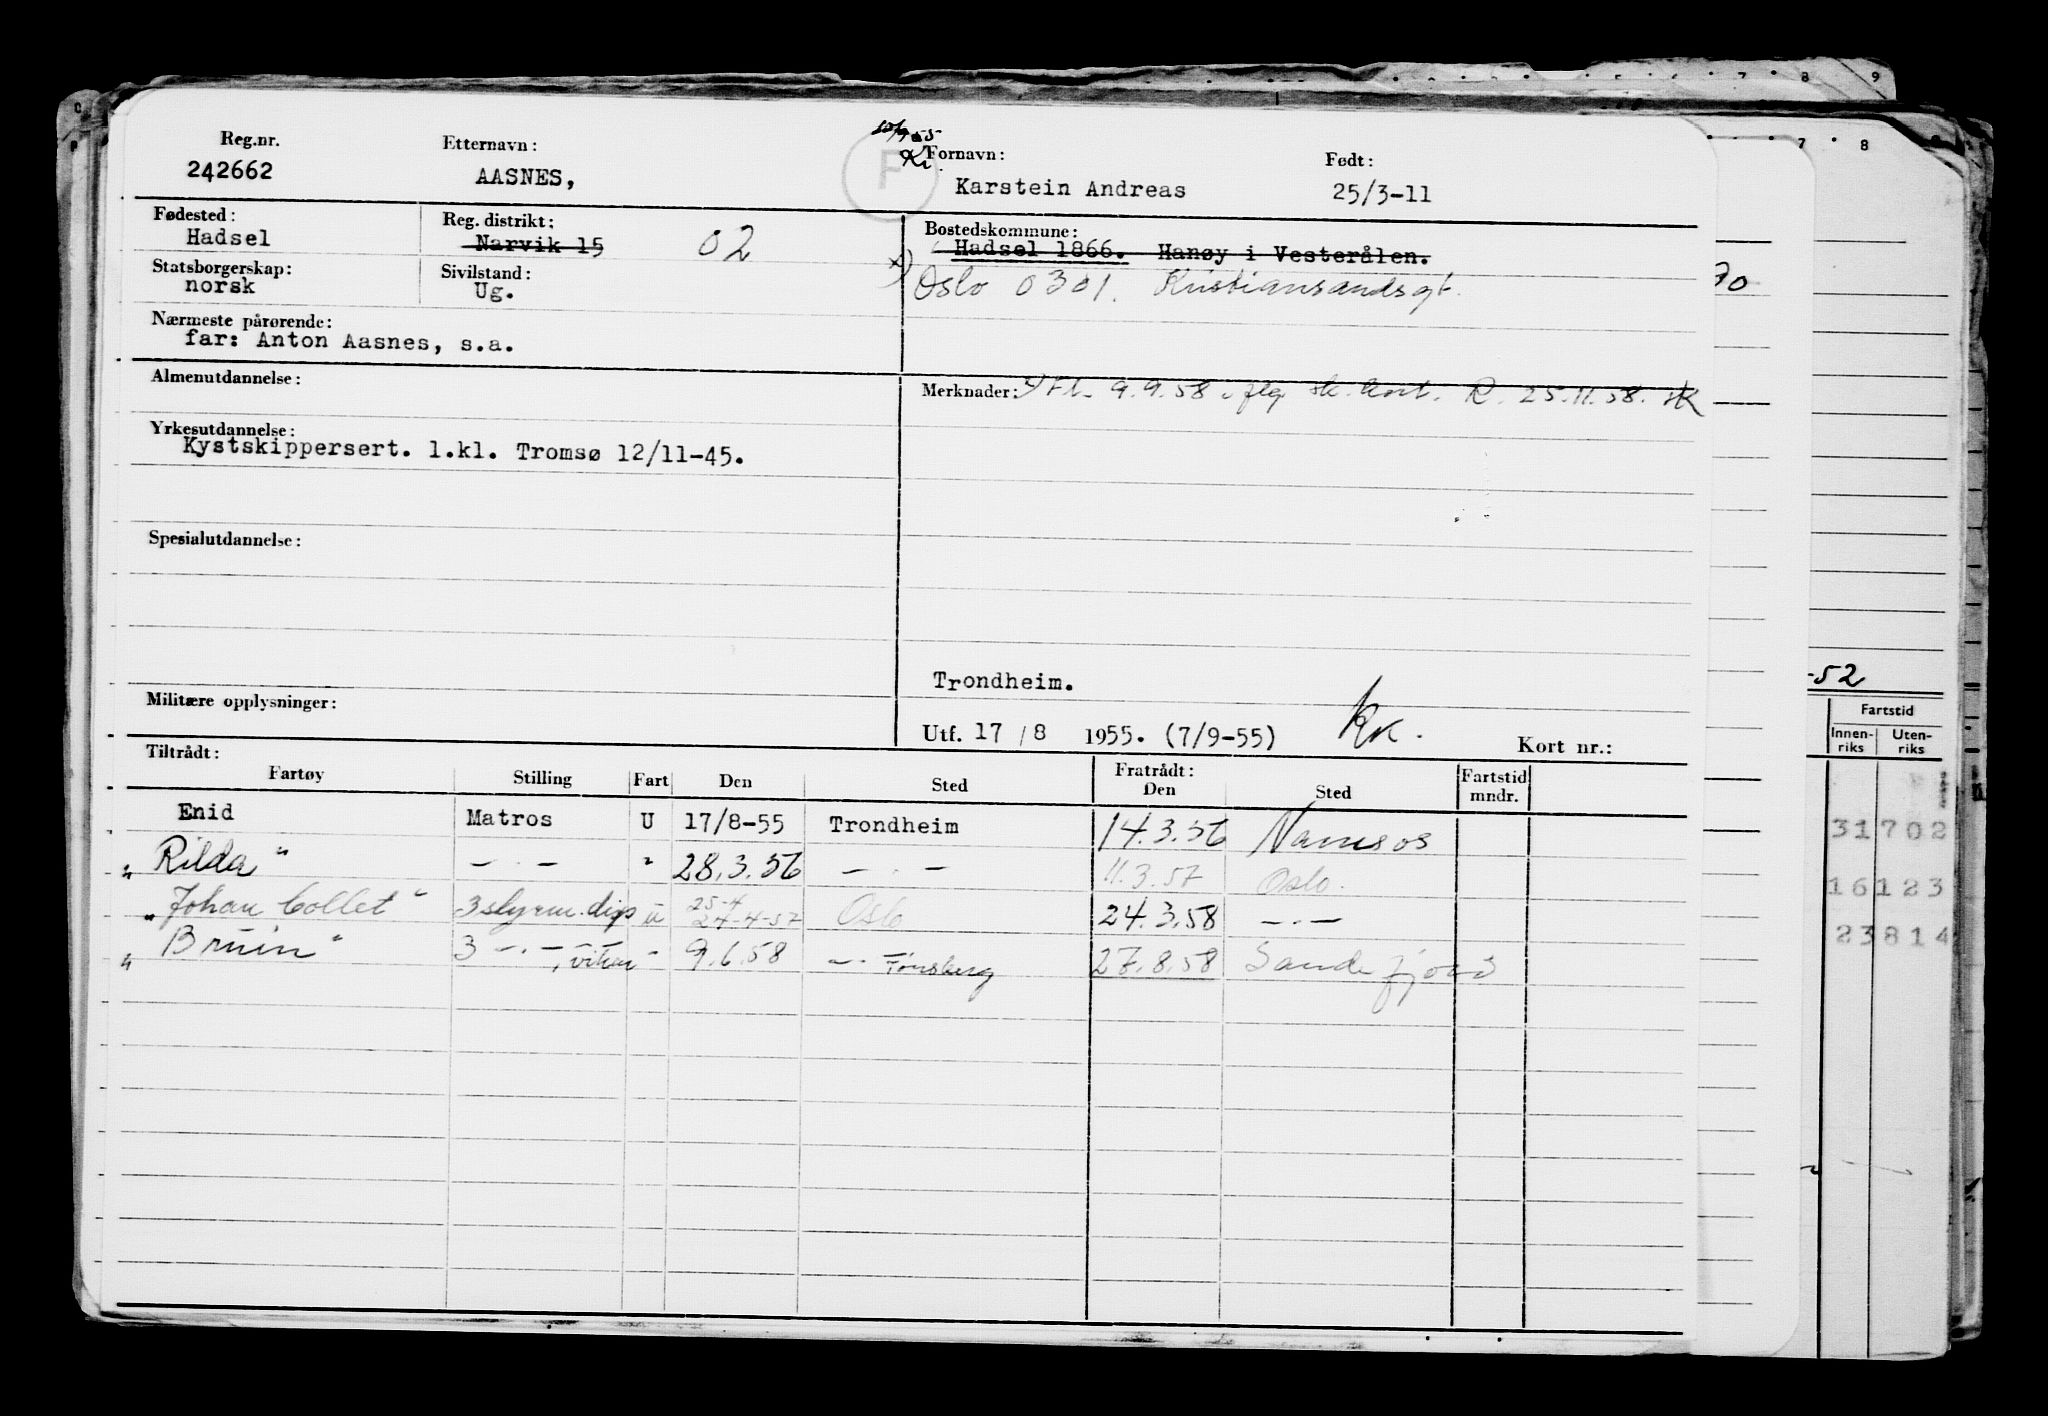 Reg.nr. Etternavn: Fornavn: Født:
242662 AASNES, Karstein Andreas 25/3-11
F
Fødested: Reg. distrikt: Bostedskommune:
Hadsel Narvik 15 02 Hadsel 1866. Hanøy i Vesterålen.
Statsborgerskap: Sivilstand: x) Oslo 0301. Kristiansandsgt.
norsk Ug.
Nærmeste pårørende:
far: Anton Aasnes, s.a.
Almenutdannelse: Merknader: x) Fl. 9.9.58 R. 25.11.58.
Yrkesutdannelse:
Kystskippersert. 1.kl. Tromsø 12/11-45.
Spesialutdannelse:
Trondheim.
Militære opplysninger:
Utf. 17/8 1955. (7/9-55) Kort nr.:
Tiltrådt: Fratrådt:
Fartøy Stilling Fart Den Sted Den Sted Fartstid mndr.
Enid Matros U 17/8-55 Trondheim 14.3.56 Namsos
" Rilda " — · — " 28.3.56 — · — 11.3.57 Oslo.
25-4
" Johan Collet " 3 styrm. disp U 24-4-57 Oslo 24.3.58 — · —
" Bruin " 3 — · — " 9.6.58 — · — Tønsberg 27.8.58 Sandefjord
7 8 9
7 8
70
-52
Fartstid
Innen-riks Uten-riks
31702
16123
23814